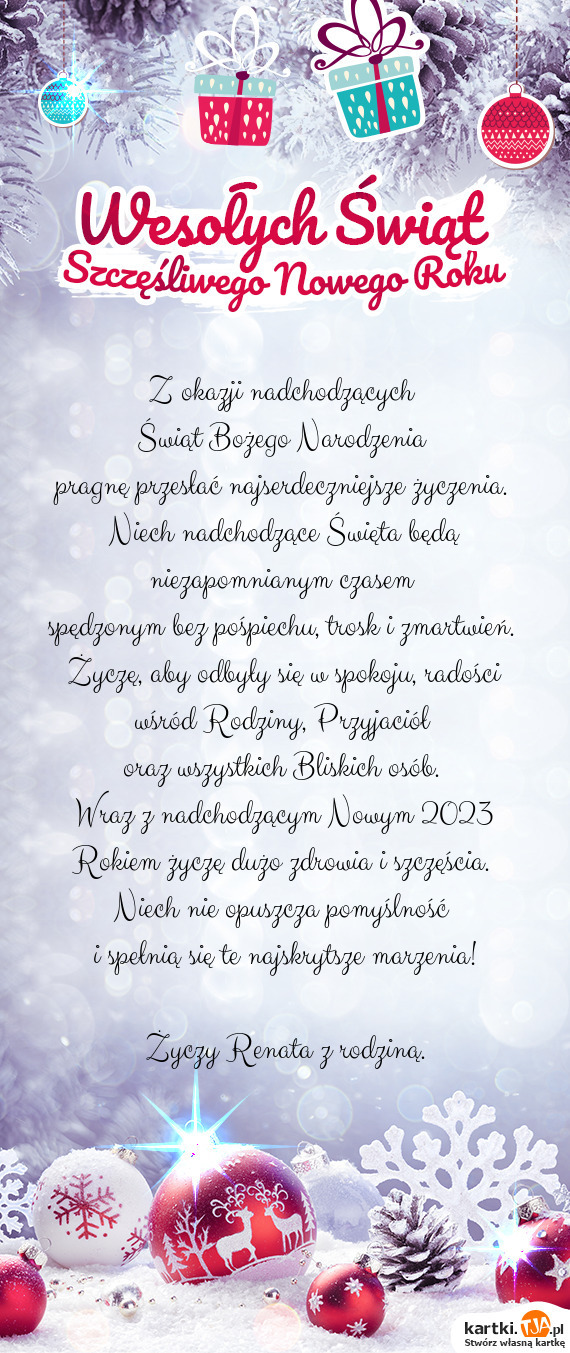 Wesołych Świąt
Szczęśliwego Nowego Roku
Z okazji nadchodzących
Świąt Bożego Narodzenia
pragnę przesłać najserdeczniejsze życzenia.
Niech nadchodzące Święta będą
niezapomnianym czasem
spędzonym bez pośpiechu, trosk i zmartwień.
Życzę, aby odbyły się w spokoju, radości
wśród Rodziny, Przyjaciół
oraz wszystkich Bliskich osób.
Wraz z nadchodzącym Nowym 2023
Rokiem życzę dużo zdrowia i szczęścia.
Niech nie opuszcza pomyślność
i spełnią się te najskrytsze marzenia!
Życzy Renata z rodziną.
kartki.TJA.pl
Stwórz własną kartkę